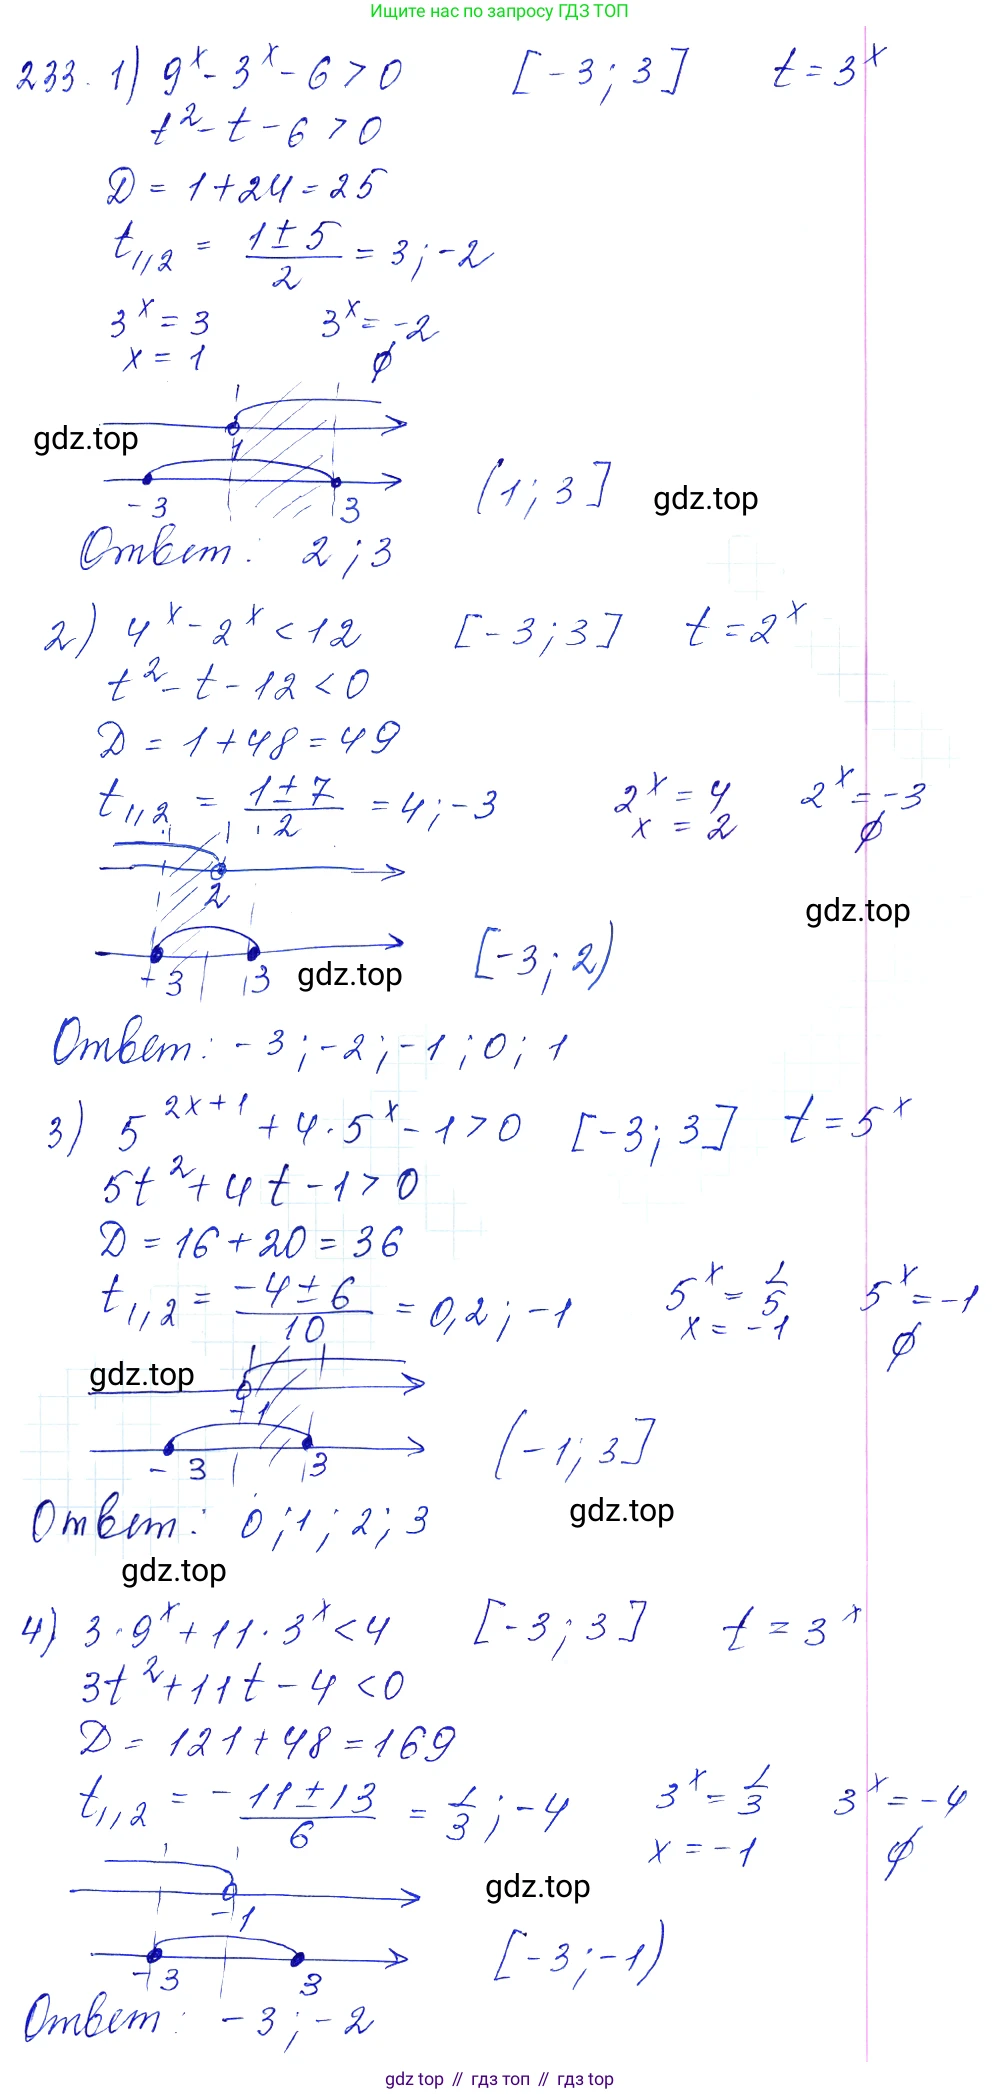 Ищите нас по запросу ГДЗ ТОП
233. 1) 9^x - 3^x - 6 > 0   [-3; 3]   t = 3^x
t^2 - t - 6 > 0
D = 1 + 24 = 25
t_{1,2} = \frac{1 ± 5}{2} = 3; -2
3^x = 3   3^x = -2
x = 1   ∅
gdz.top
1
-3   3   (1; 3]   gdz.top
Ответ: 2; 3
2) 4^x - 2^x < 12   [-3; 3]   t = 2^x
t^2 - t - 12 < 0
D = 1 + 48 = 49
t_{1,2} = \frac{1 ± 7}{2} = 4; -3   2^x = 4   2^x = -3
x = 2   ∅
2
gdz.top
-3   3   gdz.top   [-3; 2)
Ответ: -3; -2; -1; 0; 1
3) 5^{2x+1} + 4 · 5^x - 1 > 0   [-3; 3]   t = 5^x
5t^2 + 4t - 1 > 0
D = 16 + 20 = 36
t_{1,2} = \frac{-4 ± 6}{10} = 0,2; -1   5^x = \frac{1}{5}   5^x = -1
x = -1   ∅
gdz.top
-1
-3   3   (-1; 3]
Ответ: 0; 1; 2; 3   gdz.top
gdz.top
4) 3 · 9^x + 11 · 3^x < 4   [-3; 3]   t = 3^x
3t^2 + 11t - 4 < 0
D = 121 + 48 = 169
t_{1,2} = \frac{-11 ± 13}{6} = \frac{1}{3}; -4   3^x = \frac{1}{3}   3^x = -4
x = -1   ∅
gdz.top
-1
-3   3   [-3; -1)
Ответ: -3; -2
gdz.top // гдз топ // гдз.топ